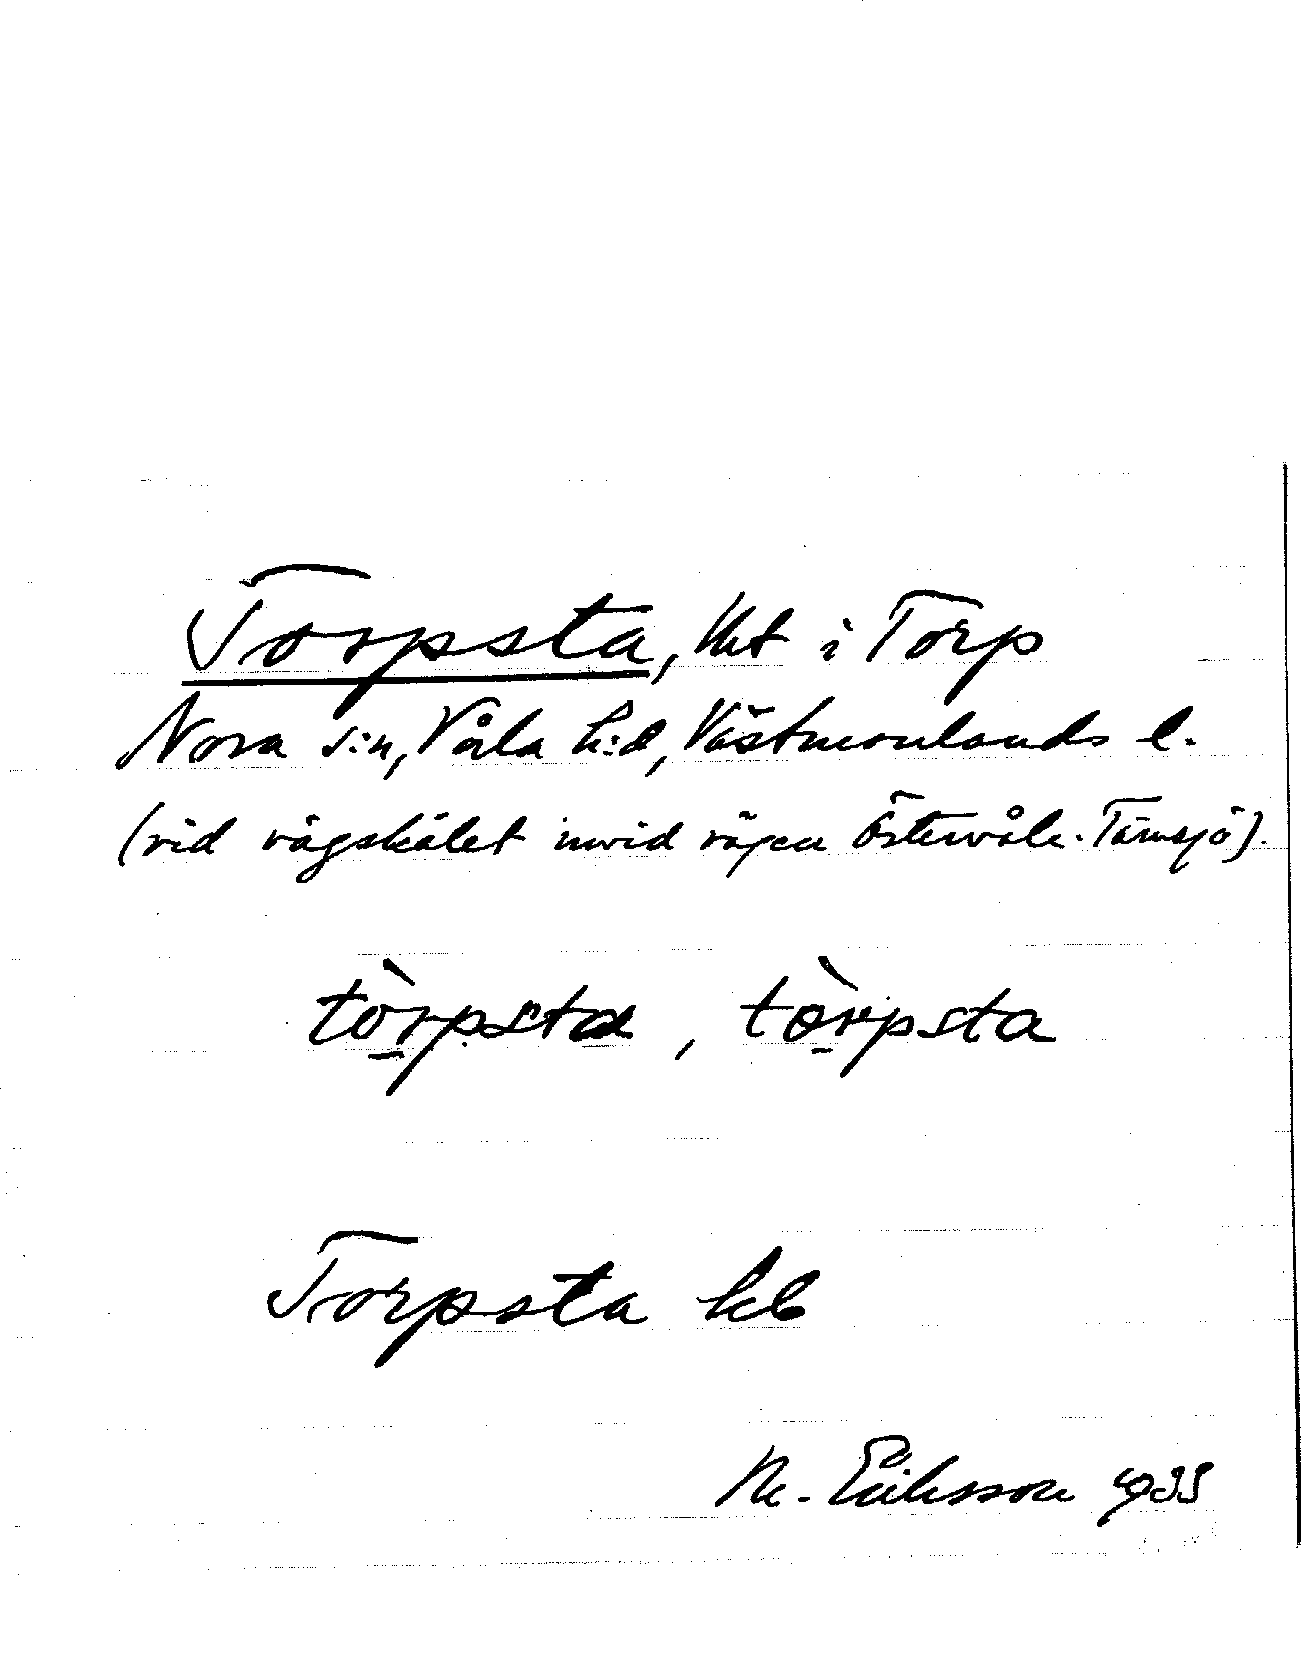 Torpsta, hlt i Torp
Nora s:n, Våla h:d, Västmanlands l.
(vid vägskälet invid vägen Östervåla-Tärnsjö).
tò̱rpsta, tò̱rpsta
Torpsta kb
M. Eriksson 1935